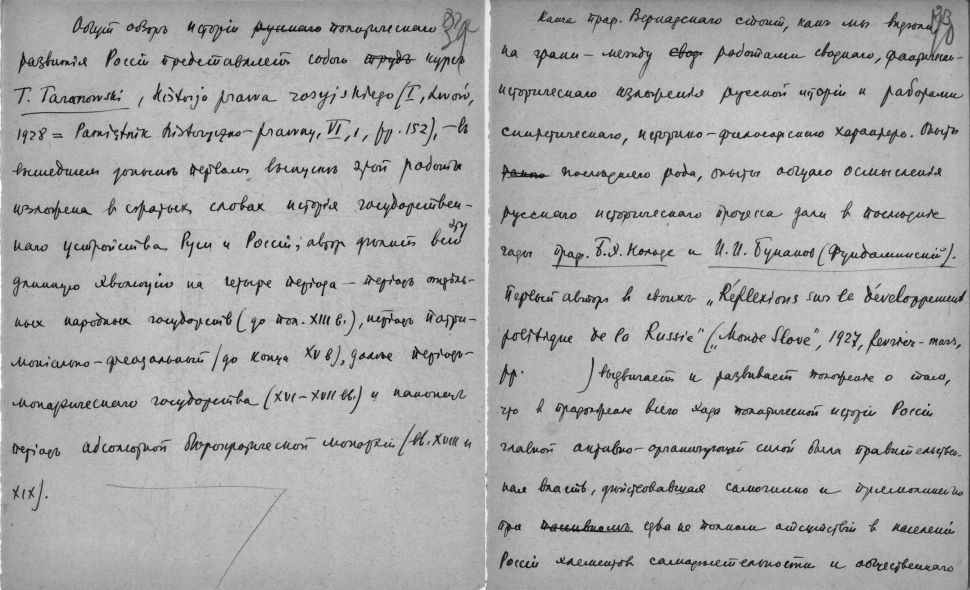 Общий обзоръ исторiи русскаго политическаго
развитiя Россiи представляетъ собою трудъ курсъ
T. Taranowski, Historja prawa rosyjskiego (I, Lwów,
1928 = Pamiętnik historyczno-prawny, VI, 1, pp. 152), – въ
вышедшемъ первомъ выпускѣ этой работы
изложена в словахъ исторiя государствен-
наго устройства Руси и Россiи; авторъ дѣлитъ всю эту
длинную эволюцiю на четыре перiода – перiодъ отдѣль-
ныхъ народныхъ государствъ (до пол. XIII в.), перiодъ патри-
монiально-феодальный (до конца XV в), далѣе перiодъ
монархическаго государства (XVI–XVII вв.) и наконецъ
перiодъ абсолютной бюрократической монархiи (вв. XVIII и
XIX).
Книга проф. Вернадскаго стоитъ, какъ мы видѣли
на грани – между свод работами своднаго, фактически-
историческаго изложенiя русской исторiи и работами
синтетическаго, историко-философскаго характера. Опыты
такого послѣдняго рода, опыты общаго осмысленiя
русскаго историческаго процесса дали в послѣднiе
годы проф. Б. Э. Нольде и И. И. Бунаковъ (Фундаминскiй).
Первый авторъ в своихъ „Réflexions sur le développement
politique de la Russie" („Monde Slave", 1927, février-mars,
pp. ) выдвигаетъ и развиваетъ положенiе о томъ,
что в продолженiе всего хода политической исторiи Россiи
главной активно-организующей силой была правительствен-
ная власть, дѣйствовавшая самочинно и прямолинейно
при пассивномъ едва не полномъ отсутствiи в населенiи
Россiи элементовъ самодѣятельности и общественнаго